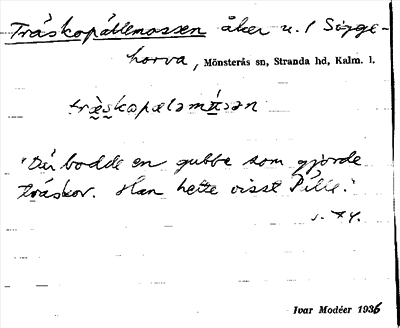 Träskopällemossen åker u. / Sigge-
horva, Mönsterås sn, Stranda hd, Kalm. l.
'Där bodde en gubbe som gjorde
träskor. Han hette visst Pille.'
s. 74.
Ivar Modéer 1936